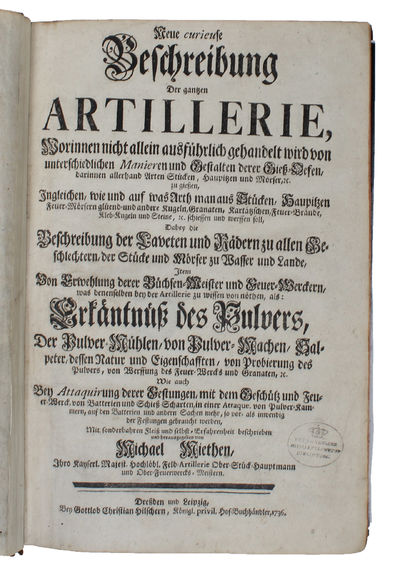 Neue curieuse
Beschreibung
Der gantzen
ARTILLERIE,
Worinnen nicht allein ausführlich gehandelt wird von
unterschiedlichen Manieren und Gestalten derer Gieß-Oefen,
darinnen allerhand Arten Stücken, Haupitzen und Mörser,ꝛc.
zu giessen,
Ingleichen, wie und auf was Arth man aus Stücken, Haupitzen
Feuer-Mörsern glüend- und andere Kugeln, Granaten, Kartätschen, Feuer-Brände,
Kleb-Kugeln und Steine, ꝛc. schiessen und werffen soll,
Dabey die
Beschreibung der Laveten und Rädern zu allen Ge-
schlechtern, der Stücke und Mörser zu Wasser und Lande,
Item
Von Erwehlung derer Büchsen-Meister und Feuer-Werckern,
was denenselben bey der Artillerie zu wissen von nöthen, als:
Erkäntnüß des Pulvers,
Der Pulver-Mühlen, von Pulver-Machen, Sal-
peter, dessen Natur und Eigenschafften, von Probierung des
Pulvers, von Werffung des Feuer-Wercks und Granaten, ꝛc.
Wie auch
Bey Attaquirung derer Festungen, mit dem Geschütz und Feu-
er-Werck, von Batterien und Schieß-Scharten, in einer Attaque, von Pulver-Kam-
mern, auf den Batterien und andern Sachen mehr, so vor- als inwendig
der Festungen gebraucht werden,
Mit sonderbahren Fleiß und selbst-Erfahrenheit beschrieben
und herausgegeben von
Michael Miethen,
Ihro Kayserl. Majest. Hochlöbl. Feld-Artillerie Ober-Stück-Hauptmann
und Ober-Feuerwercks-Meistern.
Dreßden und Leipzig,
Bey Gottlob Christian Hilschern, Königl. privil. Hof-Buchhändler, 1736.